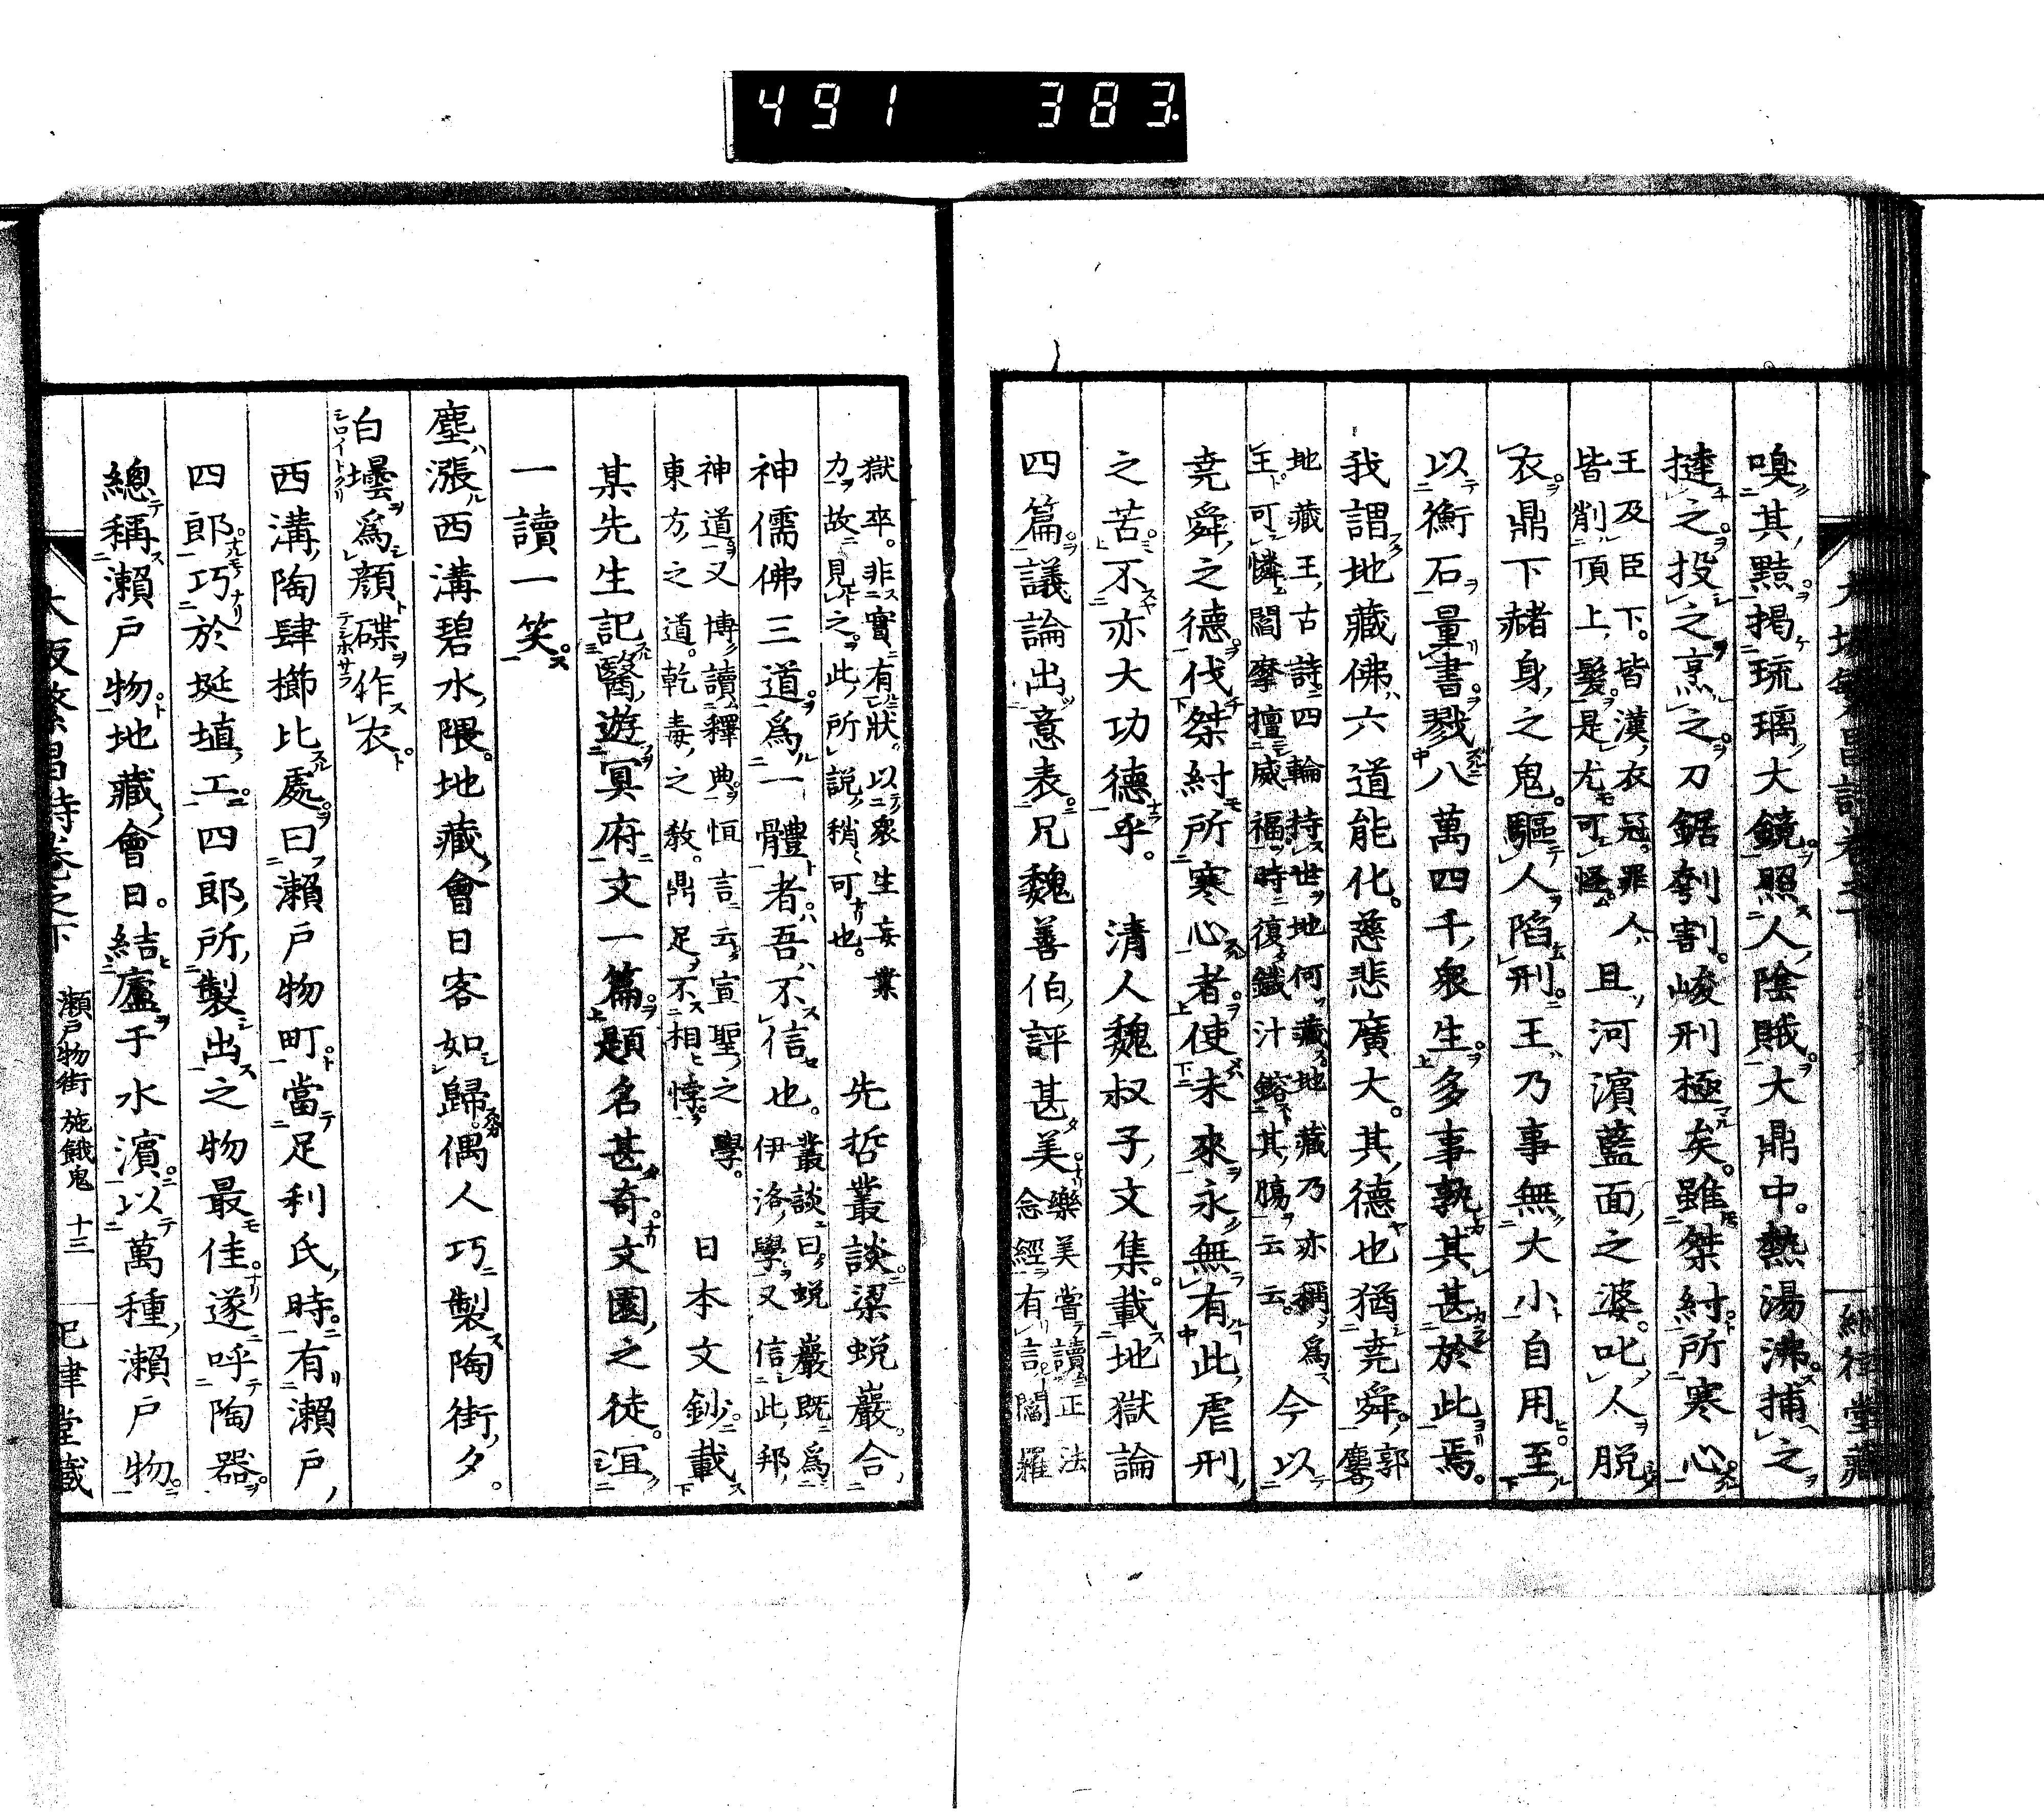 491 383
嗅其黠掲琉璃大鏡照人陰賊大鼎中熱湯沸捕之
撻之投之烹之刀鋸刳割峻刑極矣雖桀紂所寒心
王及臣下皆漢衣冠罪人
皆削頂上髮是尤可怪
且河濱藍面之婆叱人脱
衣鼎下赭身之鬼驅人陷刑王乃事無大小自用至
以衡石量書戮八萬四千衆生多事孰其甚於此焉
我謂地藏佛六道能化慈悲廣大其德也猶堯舜郭麐
地藏王古詩四輪持世地何藏地藏乃亦稱爲
王可憐閻摩擅威福時復鐵汁鎔其腸云云
今以
堯舜之德伐桀紂所寒心者使未來永無有此虐刑
之苦不亦大功德乎 清人魏叔子文集載地獄論
四篇議論出意表兄魏善伯評甚美
樂美嘗讀正法
念經有言閻羅
獄卒非實有狀以衆生妄業
力故見之此所說稍可也
先哲叢談梁蛻巖合
神儒佛三道爲一體者吾不信也
叢談曰蛻巖既爲
伊洛學又信此邦
神道又博讀釋典恒言云宣聖之學
東方之道乾毒之教鼎足不相悖
日本文鈔載
某先生記醫遊冥府文一篇題名甚奇文園之徒宜
一讀一笑
塵漲西溝碧水隈地藏會日客如歸偶人巧製陶街夕
白壜爲顏碟作衣
シロイトクリ
テシホサラ
西溝陶肆櫛比處曰瀨戸物町當足利氏時有瀨戸
四郎巧於埏埴工四郎所製出之物最佳遂呼陶器
總稱瀨戸物地藏會日結廬于水濱以萬種瀨戸物
瀬戸物街 施餓鬼 十三